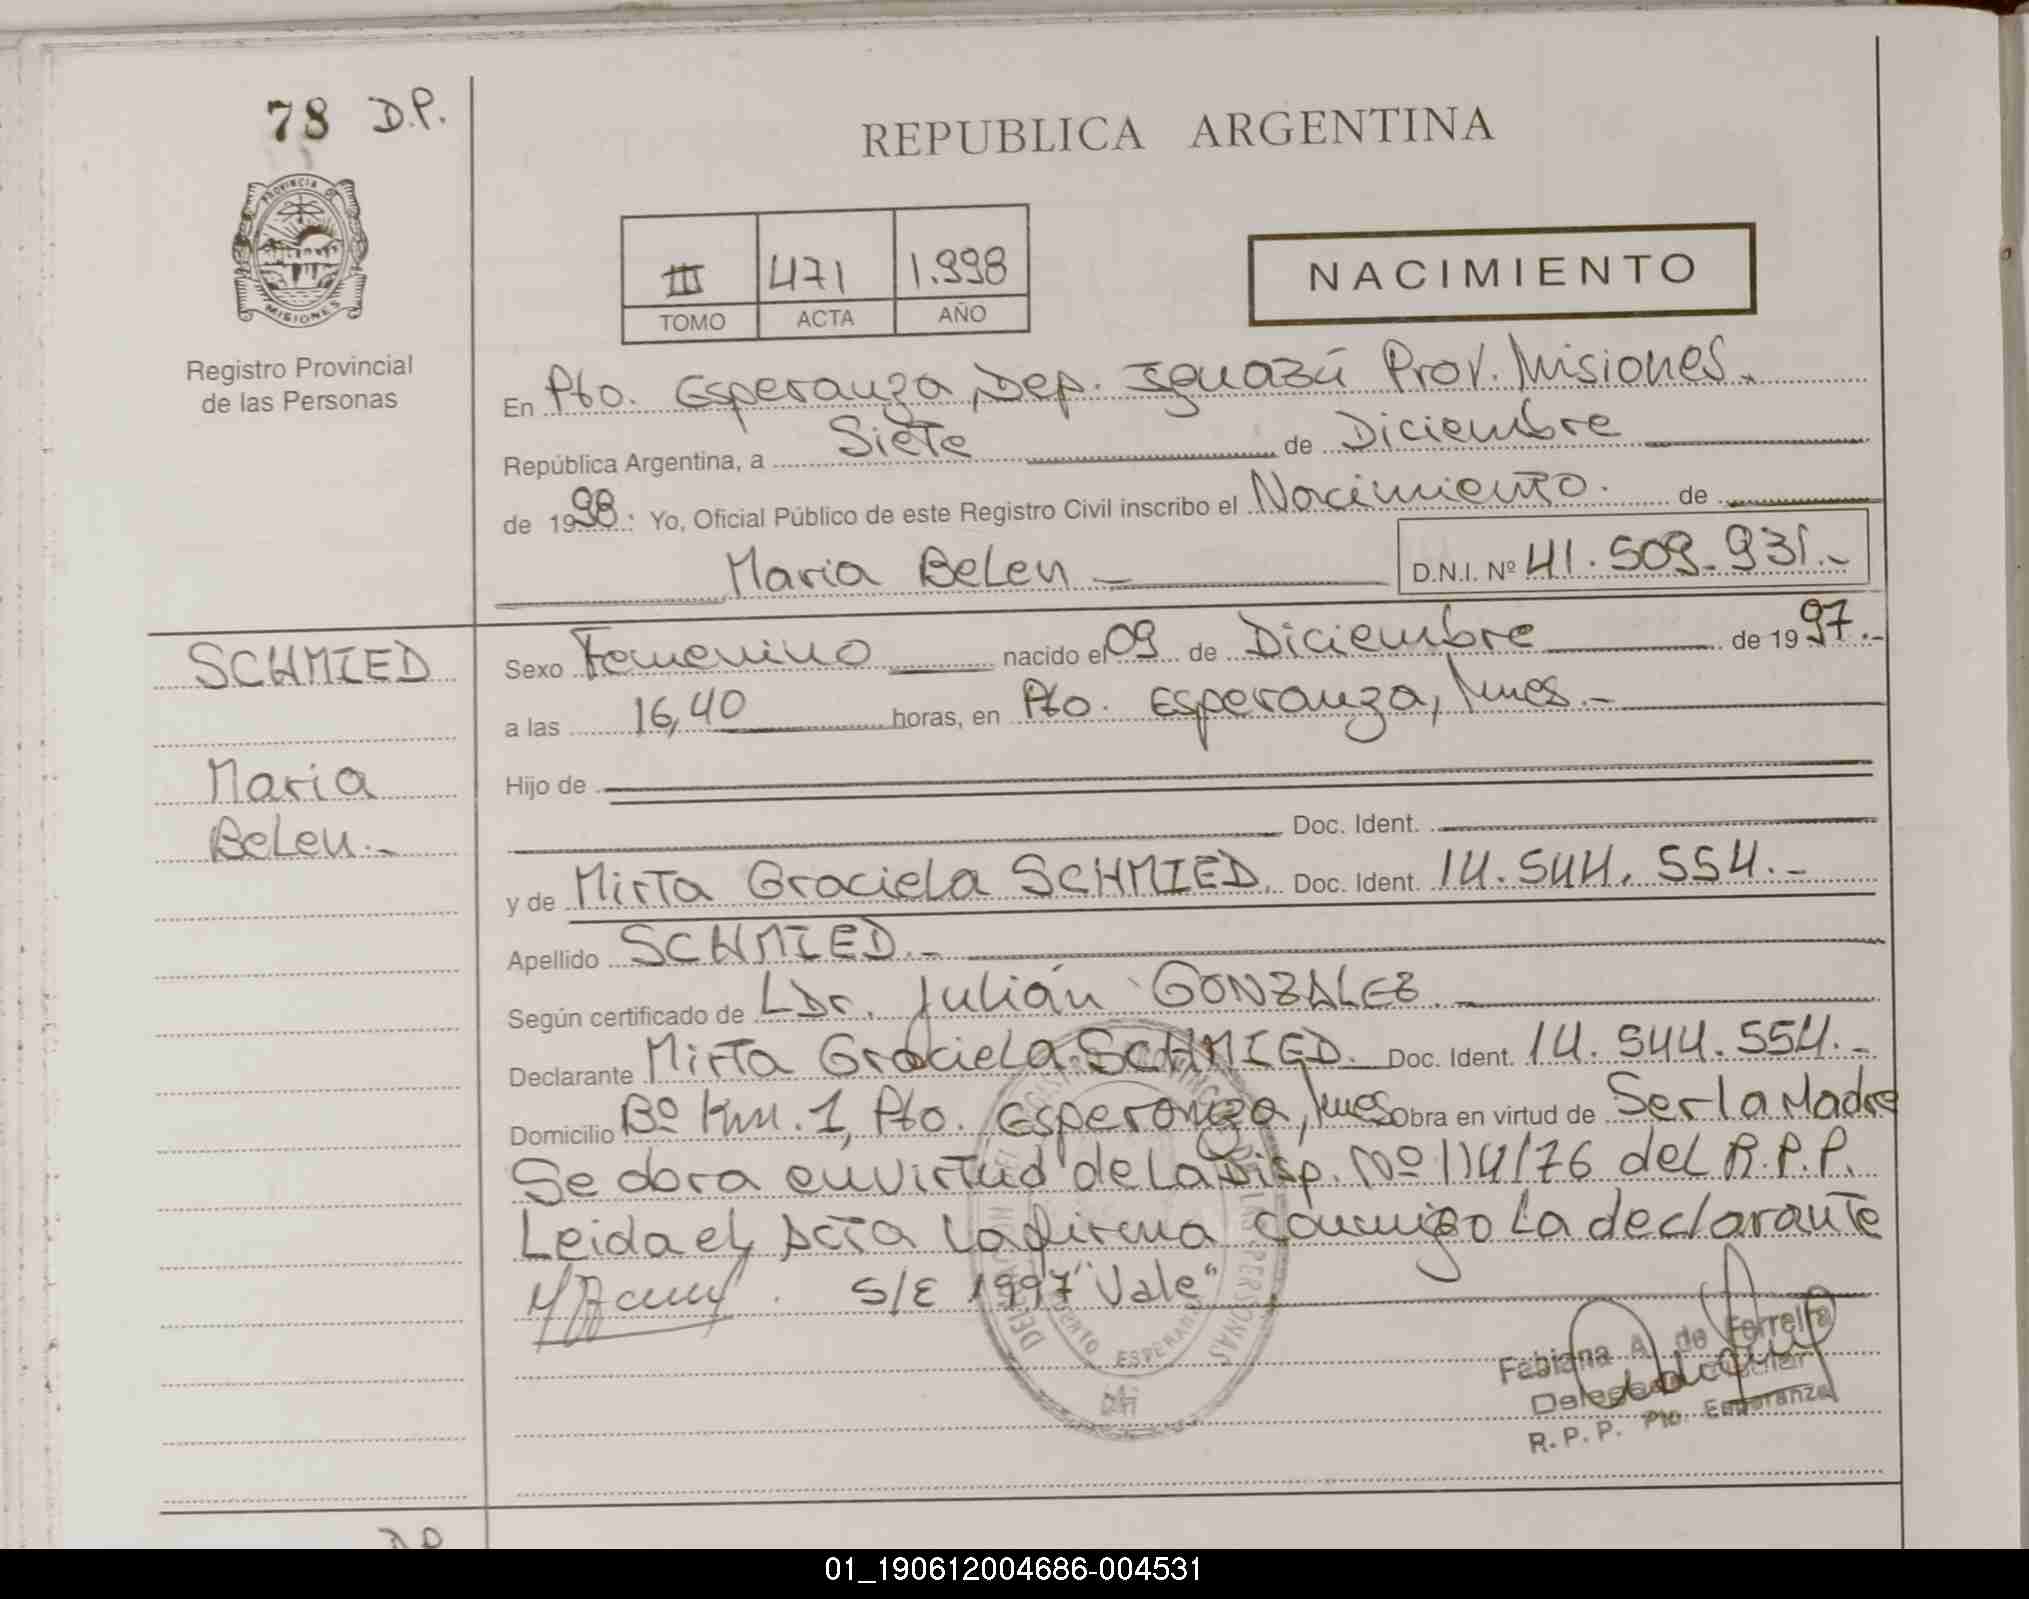 78 D.P.
REPUBLICA ARGENTINA
PROVINCIA DE
MISIONES
Registro Provincial
de las Personas
III 471 1.998
TOMO ACTA AÑO
NACIMIENTO
En Pto. Esperanza, Dep. Iguazú Prov. Misiones.
República Argentina, a Siete de Diciembre
de 1998: Yo, Oficial Público de este Registro Civil inscribo el Nacimiento. de
Maria Belen D.N.I. Nº 41.509.931.-
SCHMIED
Sexo Femenino nacido el 09 de Diciembre de 1997.-
a las 16,40 horas, en Pto. Esperanza, Mnes.-
Maria
Hijo de
Belen.-
Doc. Ident.
y de Mirta Graciela SCHMIED. Doc. Ident. 14.544.554.-
Apellido SCHMIED.-
Según certificado de LDr. Julián GONZALEZ
Declarante Mirta Graciela SCHMIED. Doc. Ident. 14.544.554.-
Domicilio Bº Km.1, Pto. Esperanza, Mnes Obra en virtud de Ser la Madre
Se obra en virtud de la Disp. Nº 114/76 del R.P.P.
Leida el Acta la firma conmigo la declarante
S/E 1997 "Vale"
PERSONAS
ESPERANZA
Fabiana A. de Ferreira
Delegada Titular
R.P.P. Pto. Esperanza
01_190612004686-004531